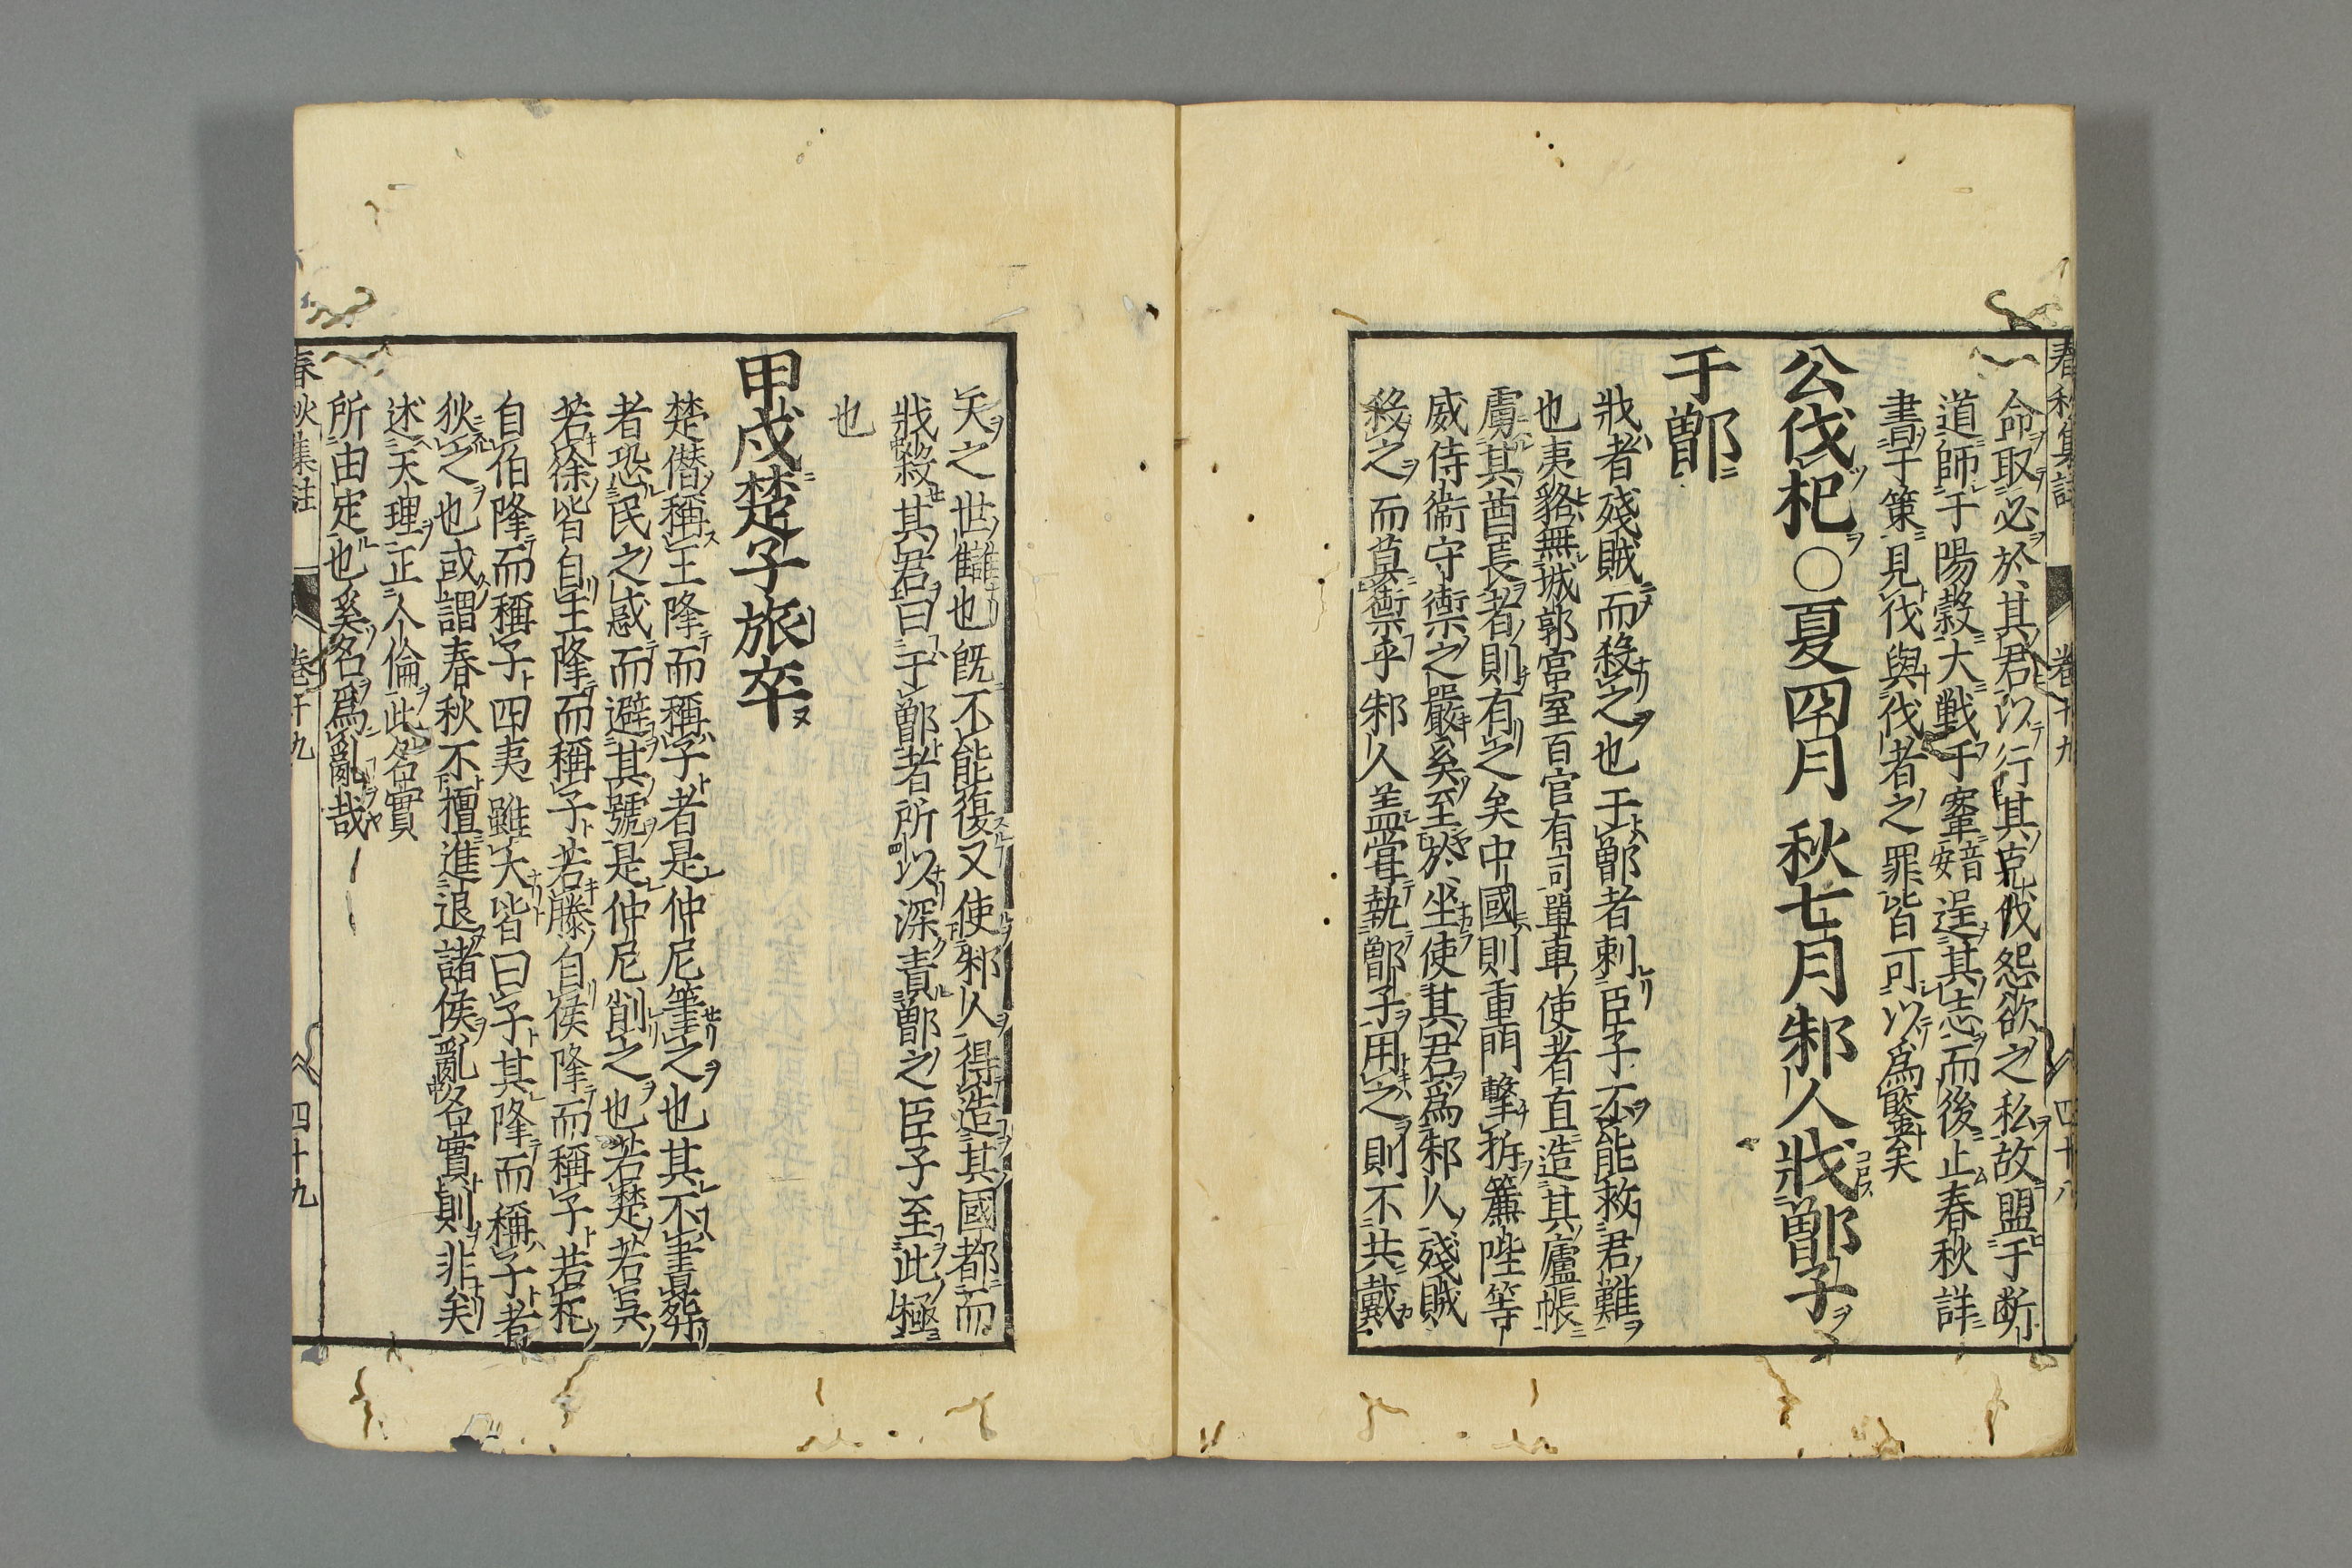 春秋集註 卷十九 四十八
命取必於其君以行其克伐怨欲之私故盟于断
道師于陽穀大戦于鞌音安逞其志而後止春秋詳
書于策見伐與伐者之罪皆可以為鑒矣
公伐杞〇夏四月秋七月邾人戕鄫子
于鄫
戕者殘賊而殺之也于鄫者刺臣子不能救君難
也夷貉無城郭宮室百官有司單車使者直造其廬帳
虜其酋長者則有之矣中國則重門擊柝簾陛等
威侍衞守禦之嚴矣至於坐使其君爲邾人殘賊
殺之而莫禦乎邾人盖甞執鄫子用之則不共戴
天之世讎也既不能復又使邾人得造其國都而
戕殺其君曰于鄫者所以深責鄫之臣子至此極
也
甲戌楚子旅卒
楚僣稱王降而稱子者是仲尼筆之也其不書葬
者恐民之惑而避其號是仲尼削之也若楚若吳
若徐皆自王降而稱子若滕自侯降而稱子若杞
自伯降而稱子四夷雖大皆曰子其降而稱子者
狄之也或謂春秋不擅進退諸侯亂名實則非矣
述天理正人倫此名實
所由定也奚名爲亂哉
春秋集註 卷十九 四十九